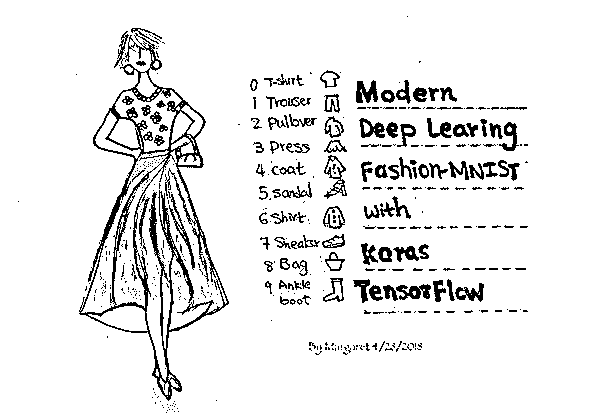 0 T-shirt
1 Trouser
2 Pullover
3 Dress
4 coat
5 sandal
6 Shirt
7 Sneaker
8 Bag
9 Ankle
boot
Modern
Deep Learing
Fashion-MNIST
with
Karas
TensorFlow
By Margaret 4/23/2018